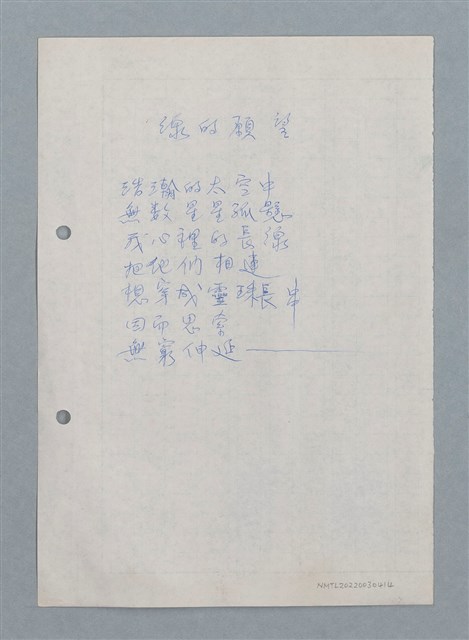 線的願望
浩瀚的太空中
無数星星孤懸
我心裡的長線
把他們相連
想穿成靈珠長串
因而思索
無窮伸延———
NMTL20220030414